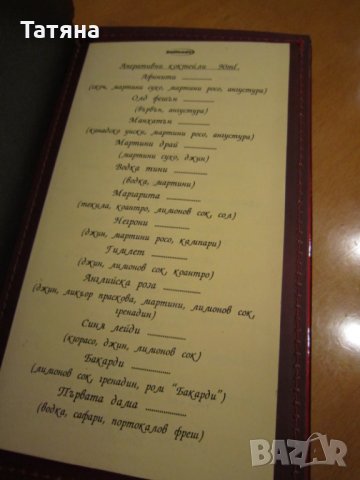 Татяна
Аперативни коктейли 90ml.
Афинити ............
(скоч, мартини сухо, мартини росо, ангостура)
Олд фешън ............
(бърбън, ангостура)
Манхатън ............
(канадско уиски, мартини росо, ангостура)
Мартини драй ............
(мартини сухо, джин)
Водка тини ............
(водка, мартини)
Маргарита ............
(текила, коантро, лимонов сок, сол)
Негрони ............
(джин, мартини росо, кампари)
Гимлет ............
(джин, лимонов сок, коантро)
Английска роза ............
(джин, ликьор праскова, мартини, лимонов сок,
гренадин)
Синя лейди ............
(кюрасо, джин, лимонов сок)
Бакарди ............
(лимонов сок, гренадин, ром "Бакарди")
Първата дама ............
(водка, сафари, портокалов фреш)
BAZAR
bg